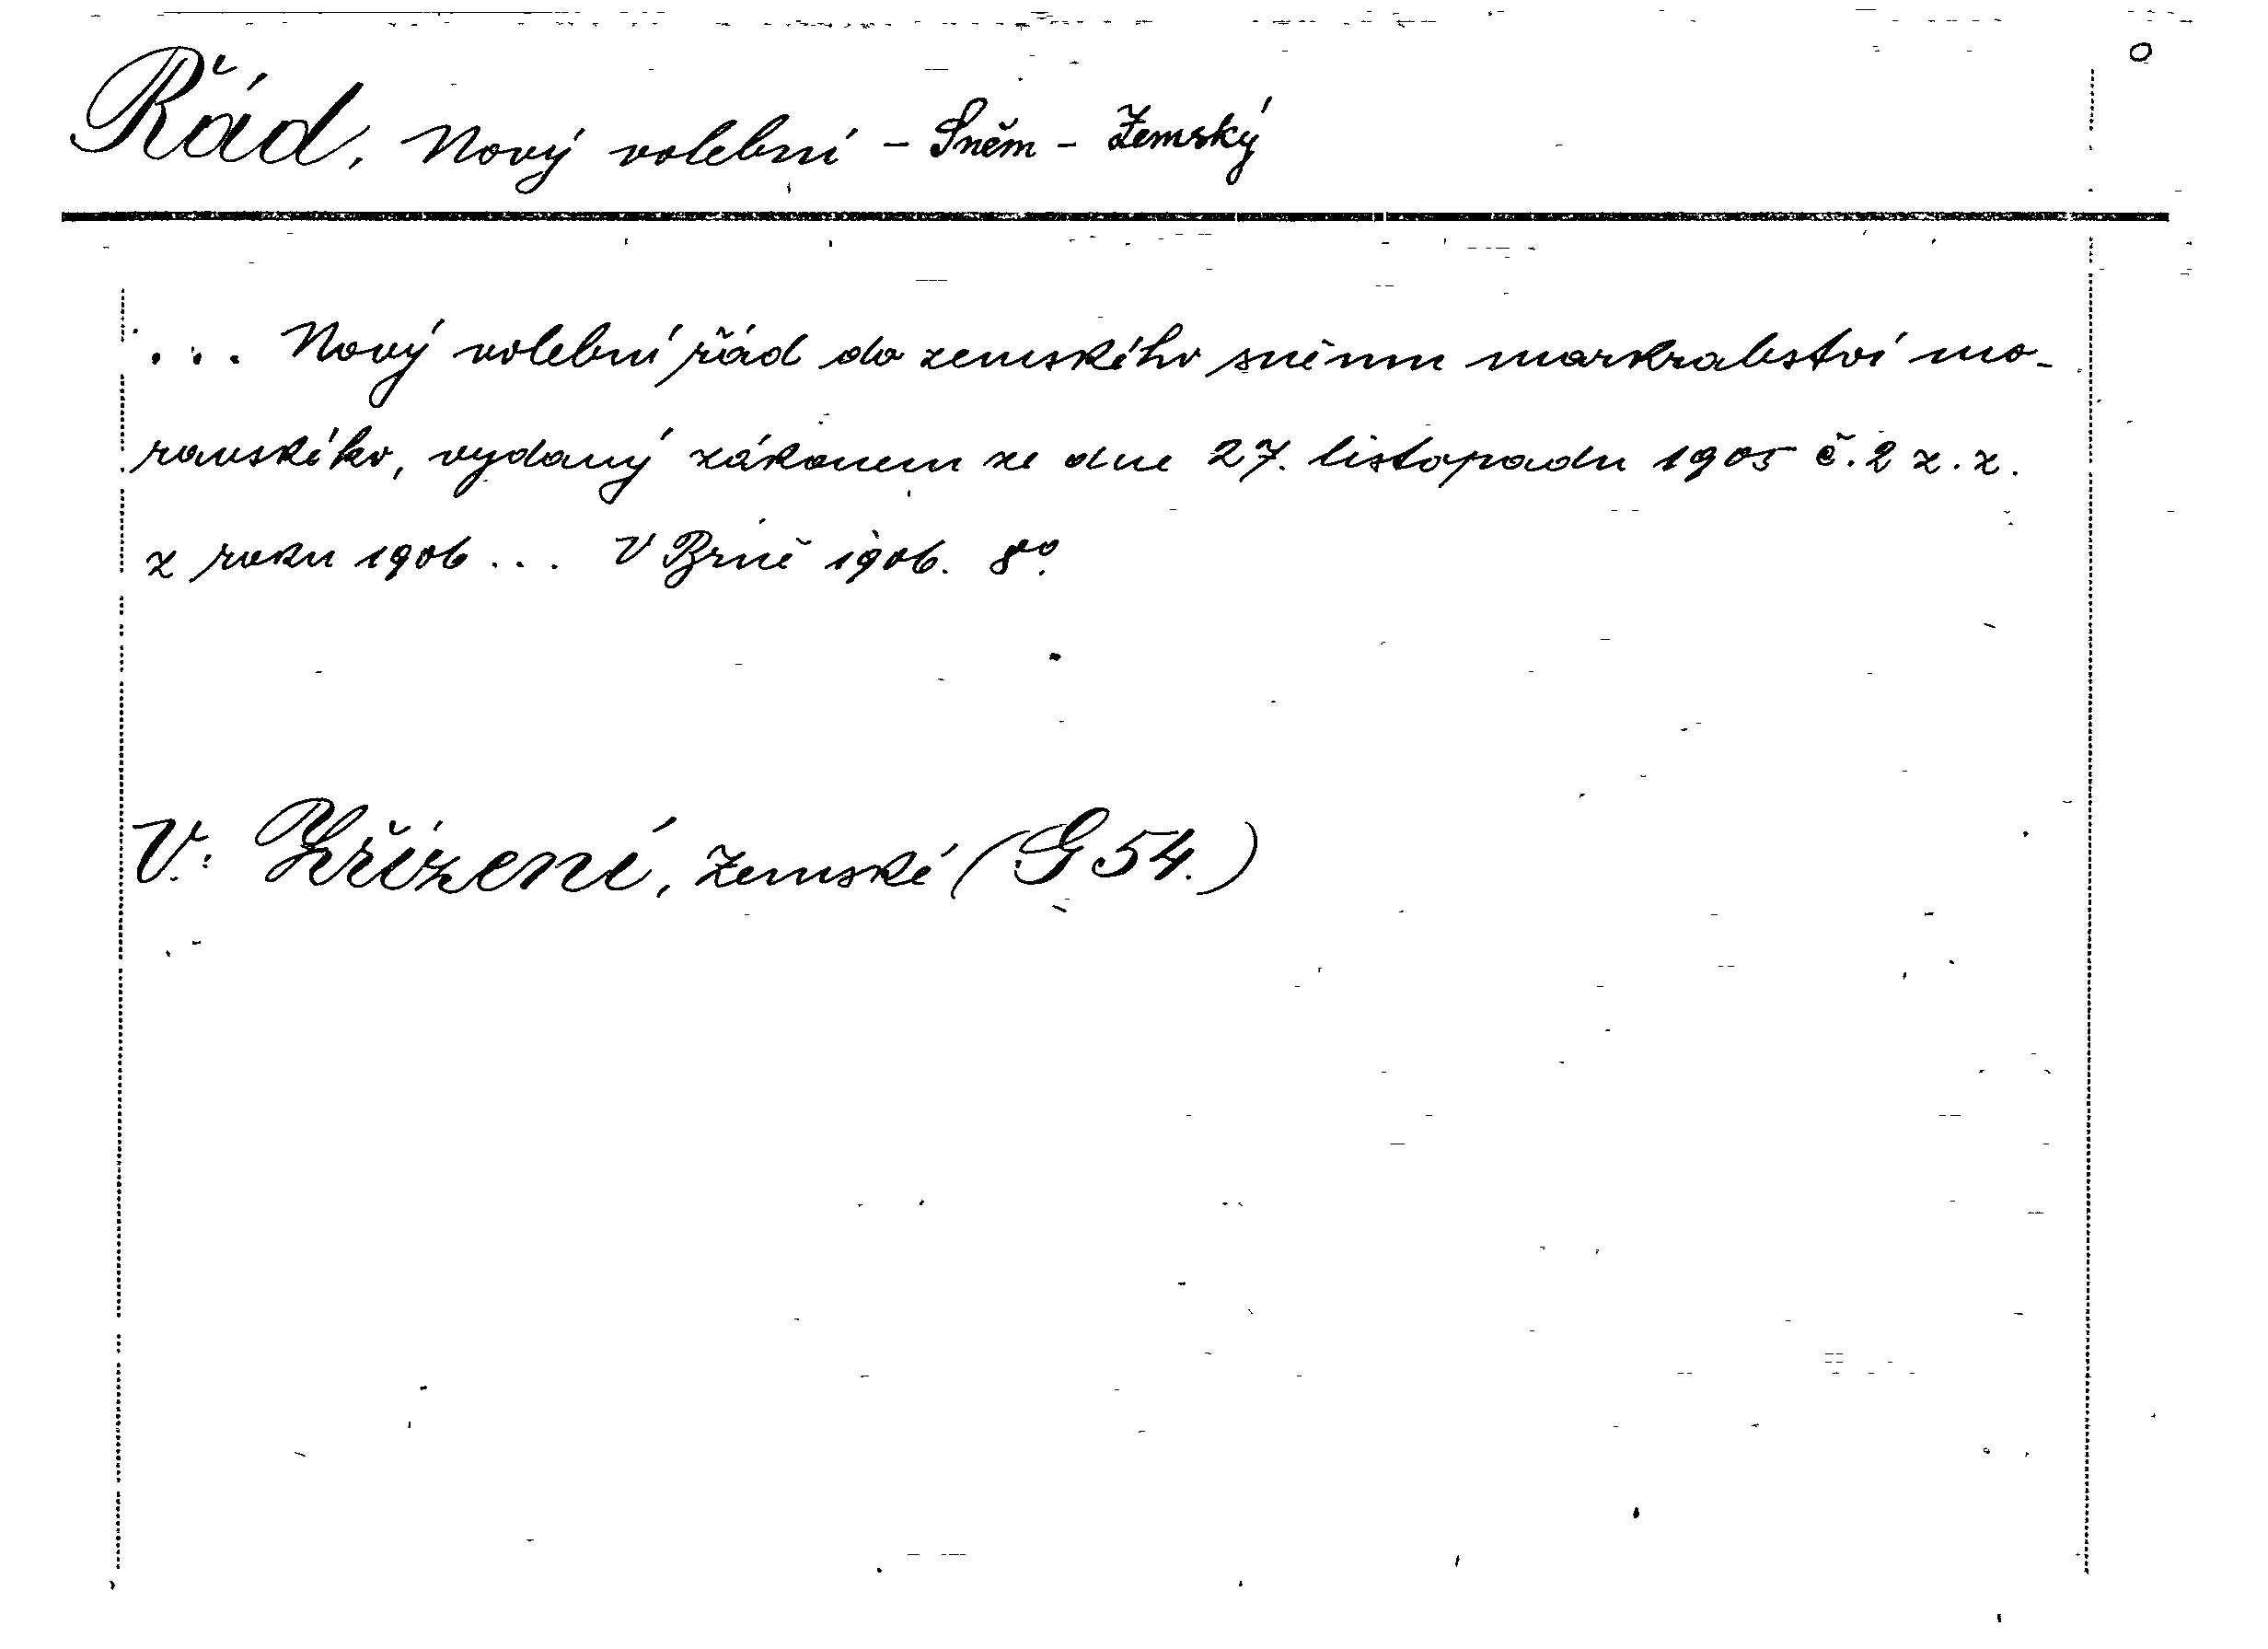 Řád, Nový volební - Sněm - Zemský
... Nový volební řád do zemského sněmu markrabství mo-
ravského, vydaný zákonem ze dne 27. listopadu 1905 č. 2 z. z.
z roku 1906 ... V Brně 1906. 8º.
V: Zřízení, Zemské (G 54.)